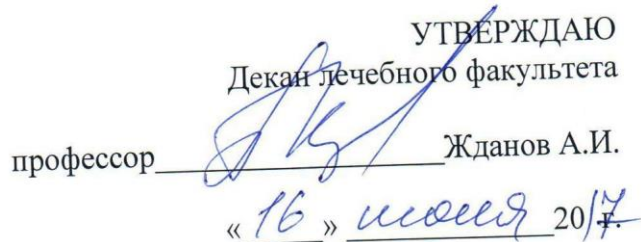 УТВЕРЖДАЮ
Декан лечебного факультета
профессор Жданов А.И.
« 16 » июня 2017 г.